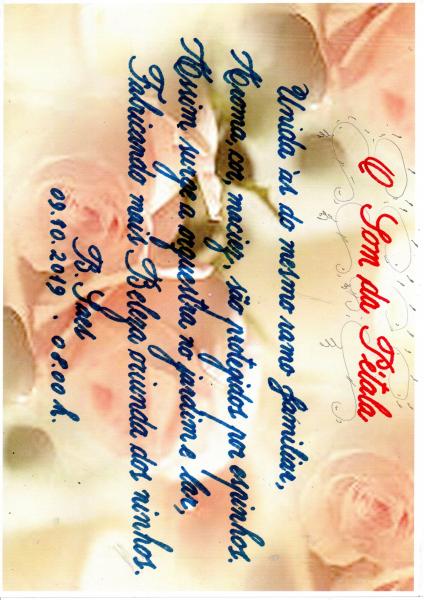 O Som da Pétala
Unida às do mesmo ramo familiar,
Aroma, cor, maciez, são protegidos por espinhos.
Assim, surge a orquestra, no jardim e lar,
Fabricando mais Beleza oriunda dos ninhos.
B. Sáes
09.10.2019 . 08:00 h.